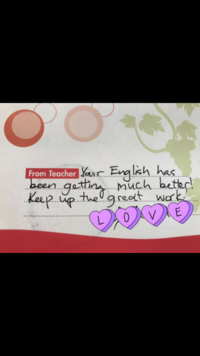 From Teacher Your English has
been getting much better!
Keep up the great work.
L O V E